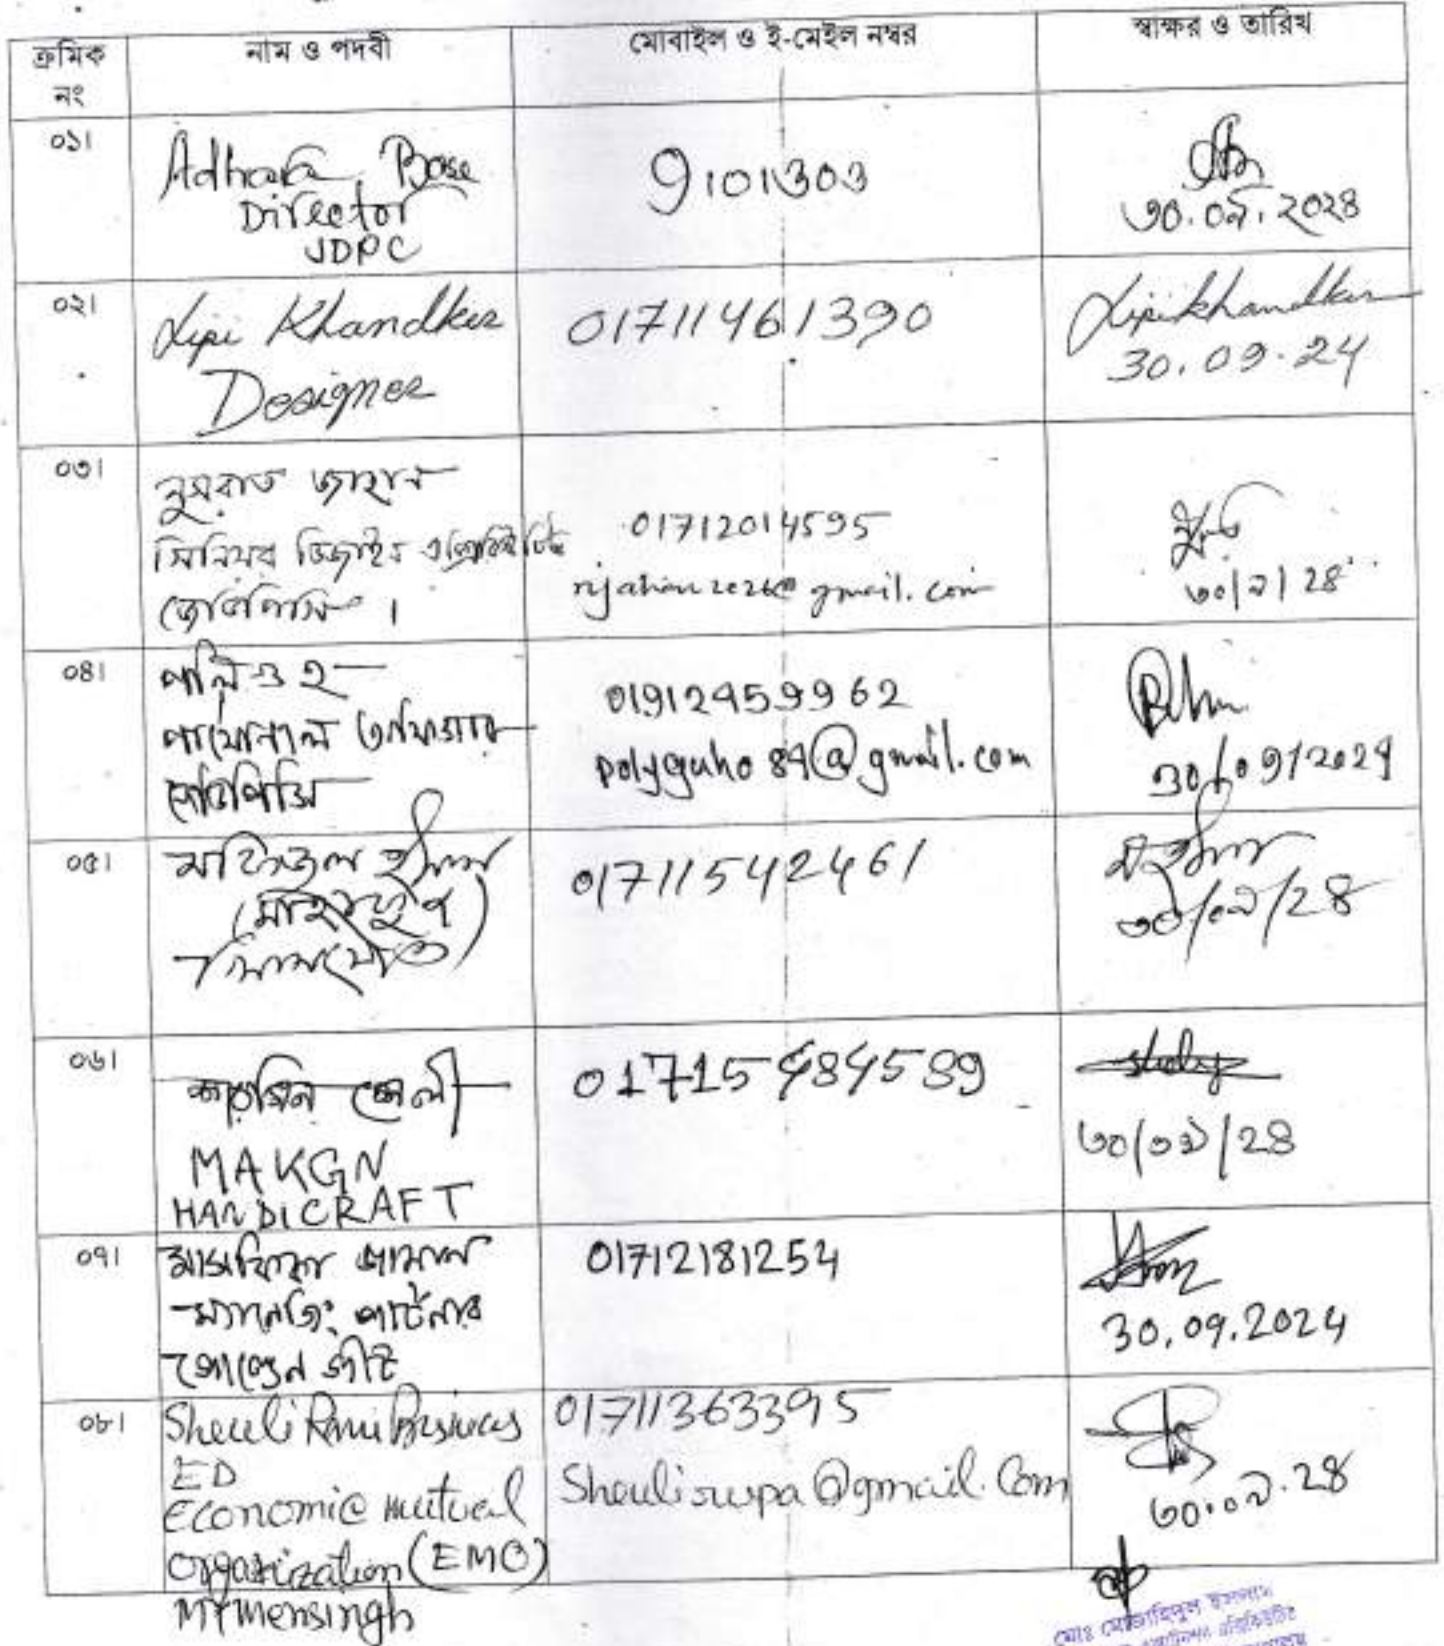 ক্রমিক নং
নাম ও পদবী
মোবাইল ও ই-মেইল নম্বর
স্বাক্ষর ও তারিখ
০১।
Adhara Bose
Director
JDPC
9101303
৩০.০৯.২০২৪
০২।
Lipi Khandker
Designer
01711461390
Lipi khandker
30.09.24
০৩।
নুসরাত জাহান
সিনিয়র ডিজাইন
জেডিপিসি।
01712014595
gmail.com
৩০/৯/২৪
০৪।
পলি গুহ
পার্সোনাল অফিসার
জেডিপিসি
01912459962
polyguho84@gmail.com
30/09/2024
০৫।
01711542461
৩০/০৯/২৪
০৬।
শারমিন শেলী
MAKGN
HANDICRAFT
01715484589
৩০/০৯/২৪
০৭।
জামাল
ম্যানেজিং পার্টনার
গোল্ডেন জুট
01712181254
30.09.2024
০৮।
Sheuli Rani Biswas
ED
Economic mutual
Organization (EMO)
Mymensingh
01711363395
Sheulirupa@gmail.com
৩০.০৯.২৪